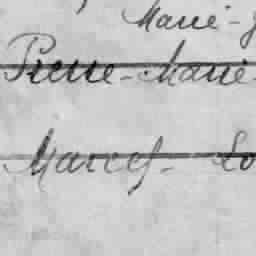 Marie-
Pierre-Marie-
Marcel- Lo